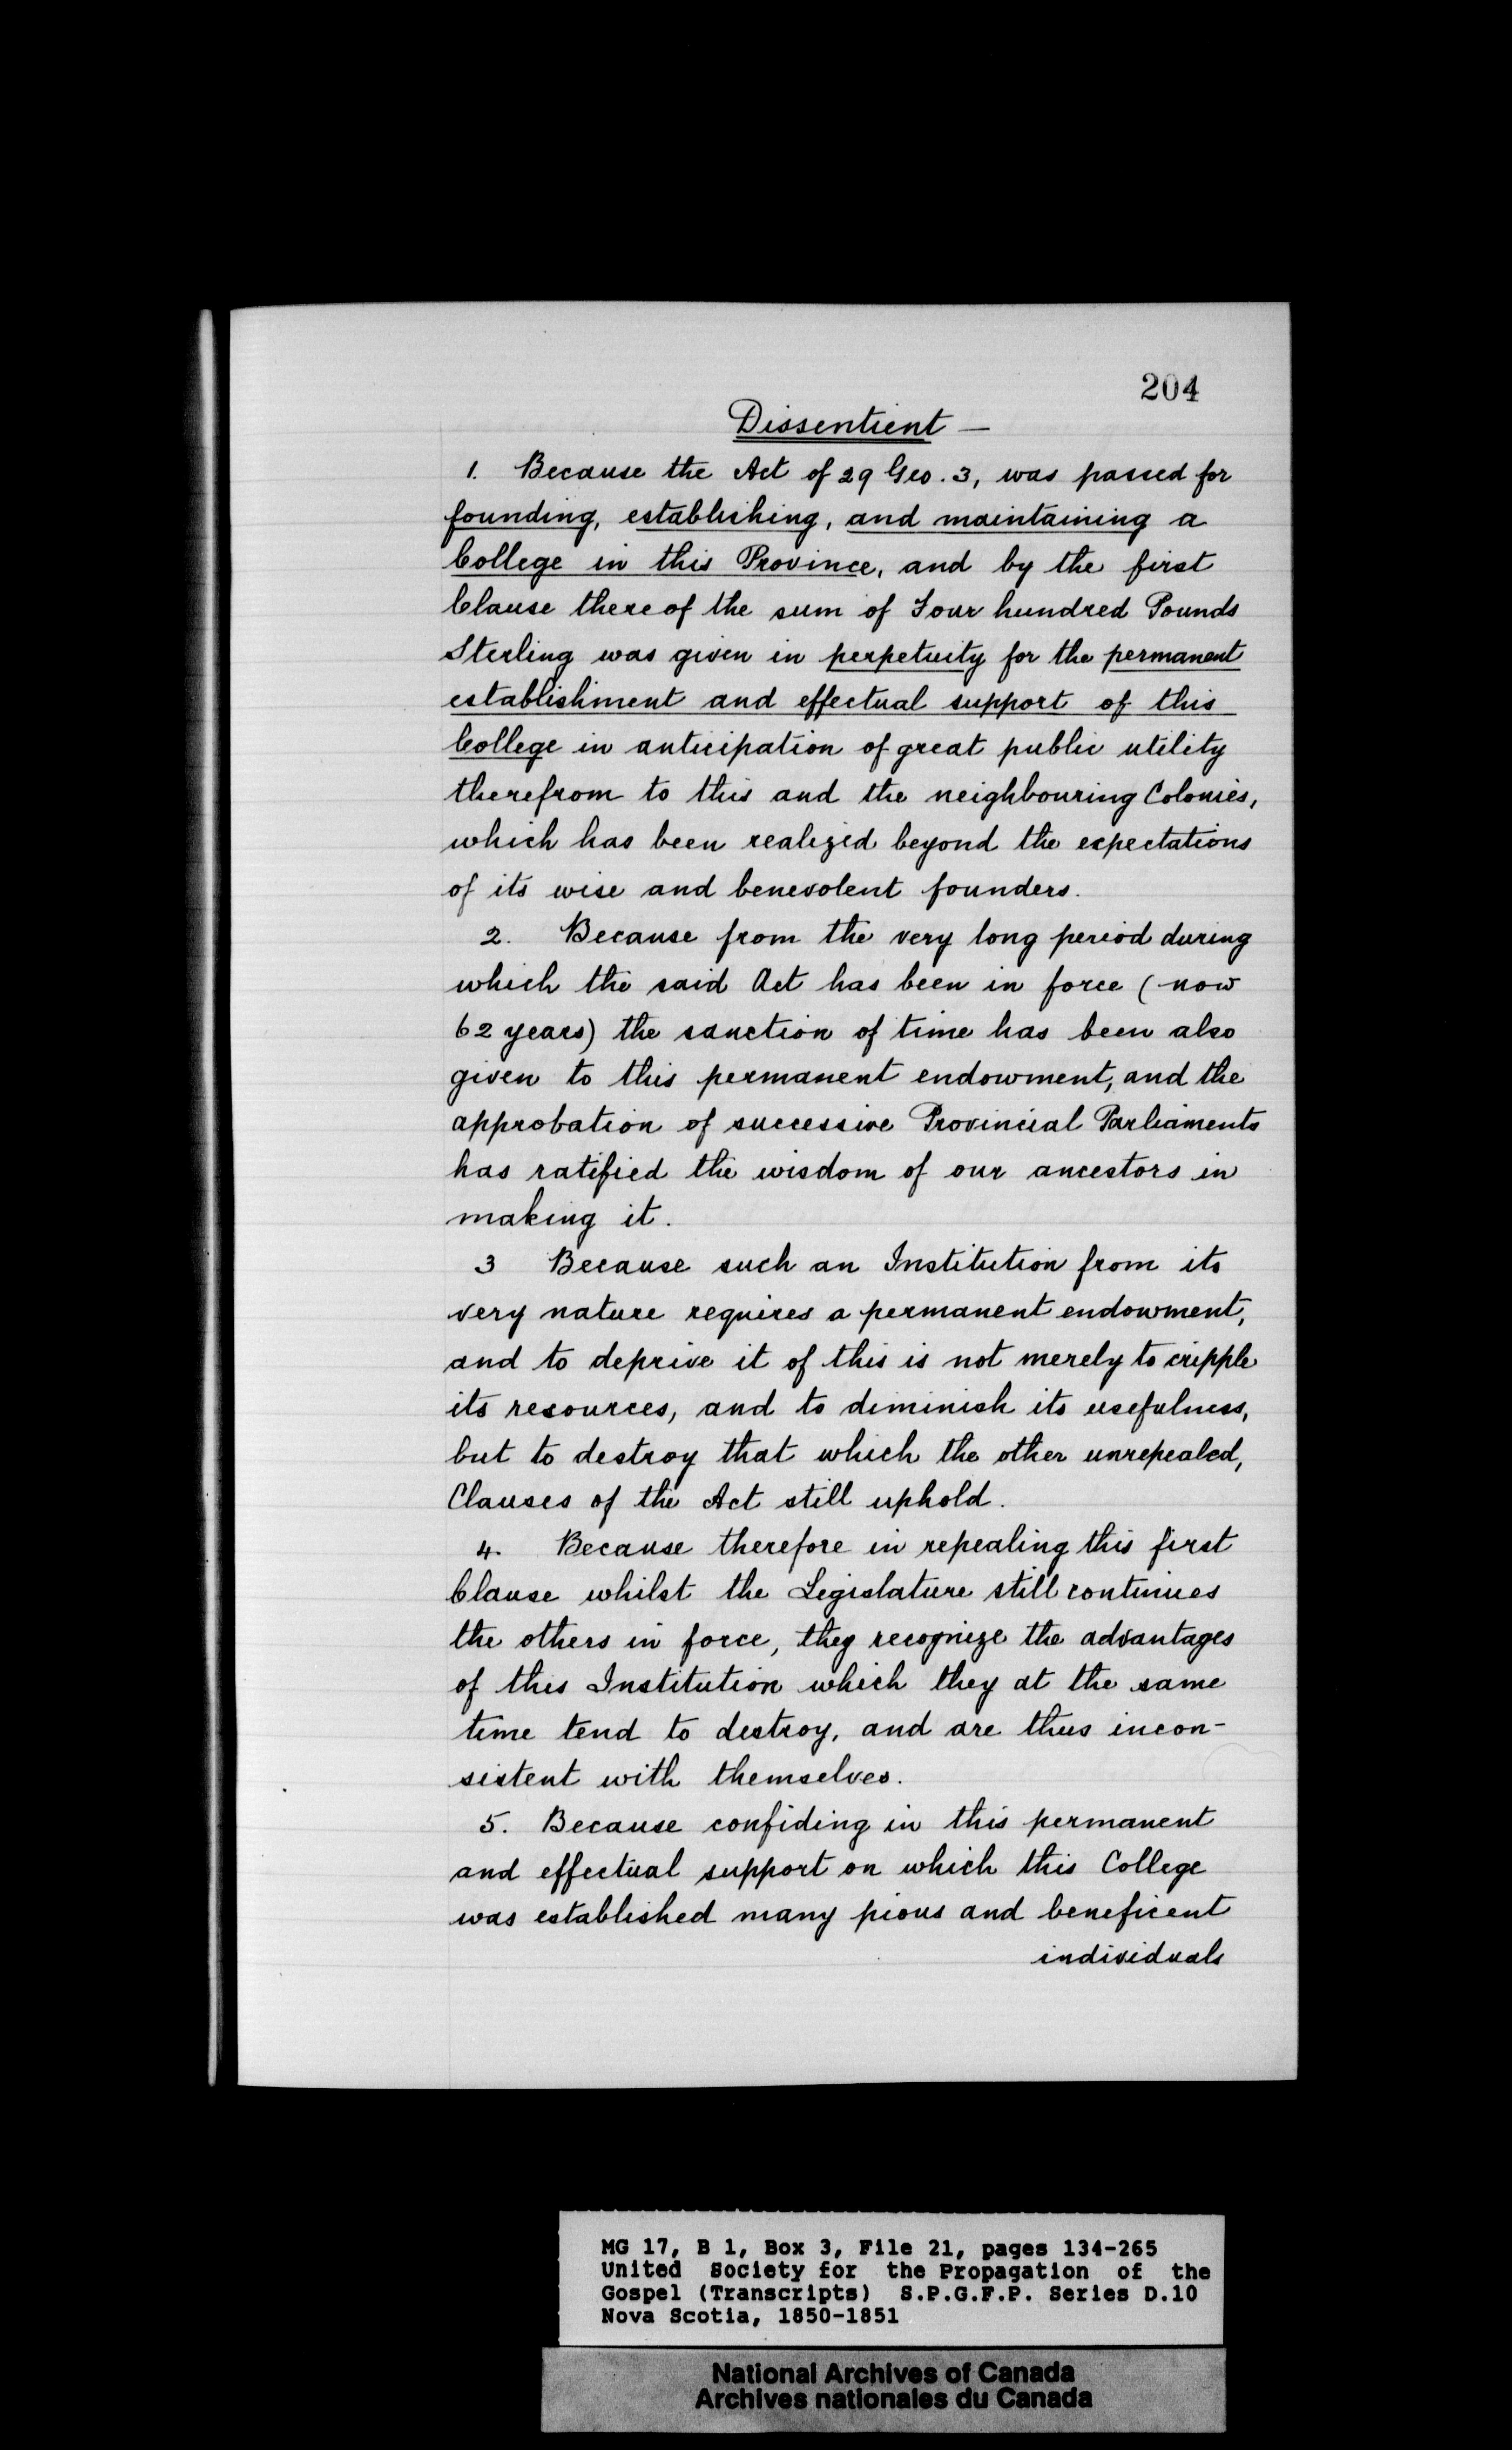 204
Dissentient —
1. Because the Act of 29 Geo. 3, was passed for
founding, establishing, and maintaining a
College in this Province, and by the first
Clause thereof the sum of Four hundred Pounds
Sterling was given in perpetuity for the permanent
establishment and effectual support of this
College in anticipation of great public utility
therefrom to this and the neighbouring Colonies,
which has been realized beyond the expectations
of its wise and benevolent founders.
2. Because from the very long period during
which the said Act has been in force (now
62 years) the sanction of time has been also
given to this permanent endowment, and the
approbation of successive Provincial Parliaments
has ratified the wisdom of our ancestors in
making it.
3 Because such an Institution from its
very nature requires a permanent endowment,
and to deprive it of this is not merely to cripple
its resources, and to diminish its usefulness,
but to destroy that which the other unrepealed,
Clauses of the Act still uphold.
4. Because therefore in repealing this first
Clause whilst the Legislature still continues
the others in force, they recognize the advantages
of this Institution which they at the same
time tend to destroy, and are thus incon-
sistent with themselves.
5. Because confiding in this permanent
and effectual support on which this College
was established many pious and beneficent
individuals
MG 17, B 1, Box 3, File 21, pages 134-265
United Society for the Propagation of the
Gospel (Transcripts) S.P.G.F.P. Series D.10
Nova Scotia, 1850-1851
National Archives of Canada
Archives nationales du Canada